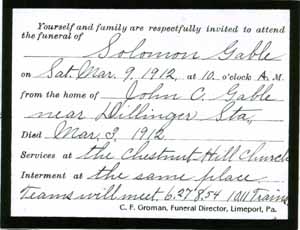 Yourself and family are respectfully invited to attend
the funeral of
Solomon Gable
on Sat. Mar. 9, 1912, at 10 o'clock A. M.
from the home of John C. Gable
near Dillinger Sta.,
Died Mar. 3, 1912
Services at the Chestnut Hill Church
Interment at the same place
Teams will meet 6.27 8.54 10.11 Trains
C. F. Groman, Funeral Director, Limeport, Pa.